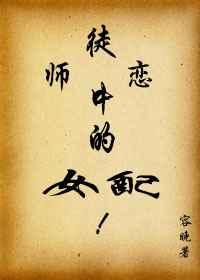 师徒恋
中的
女配
！
容晚著